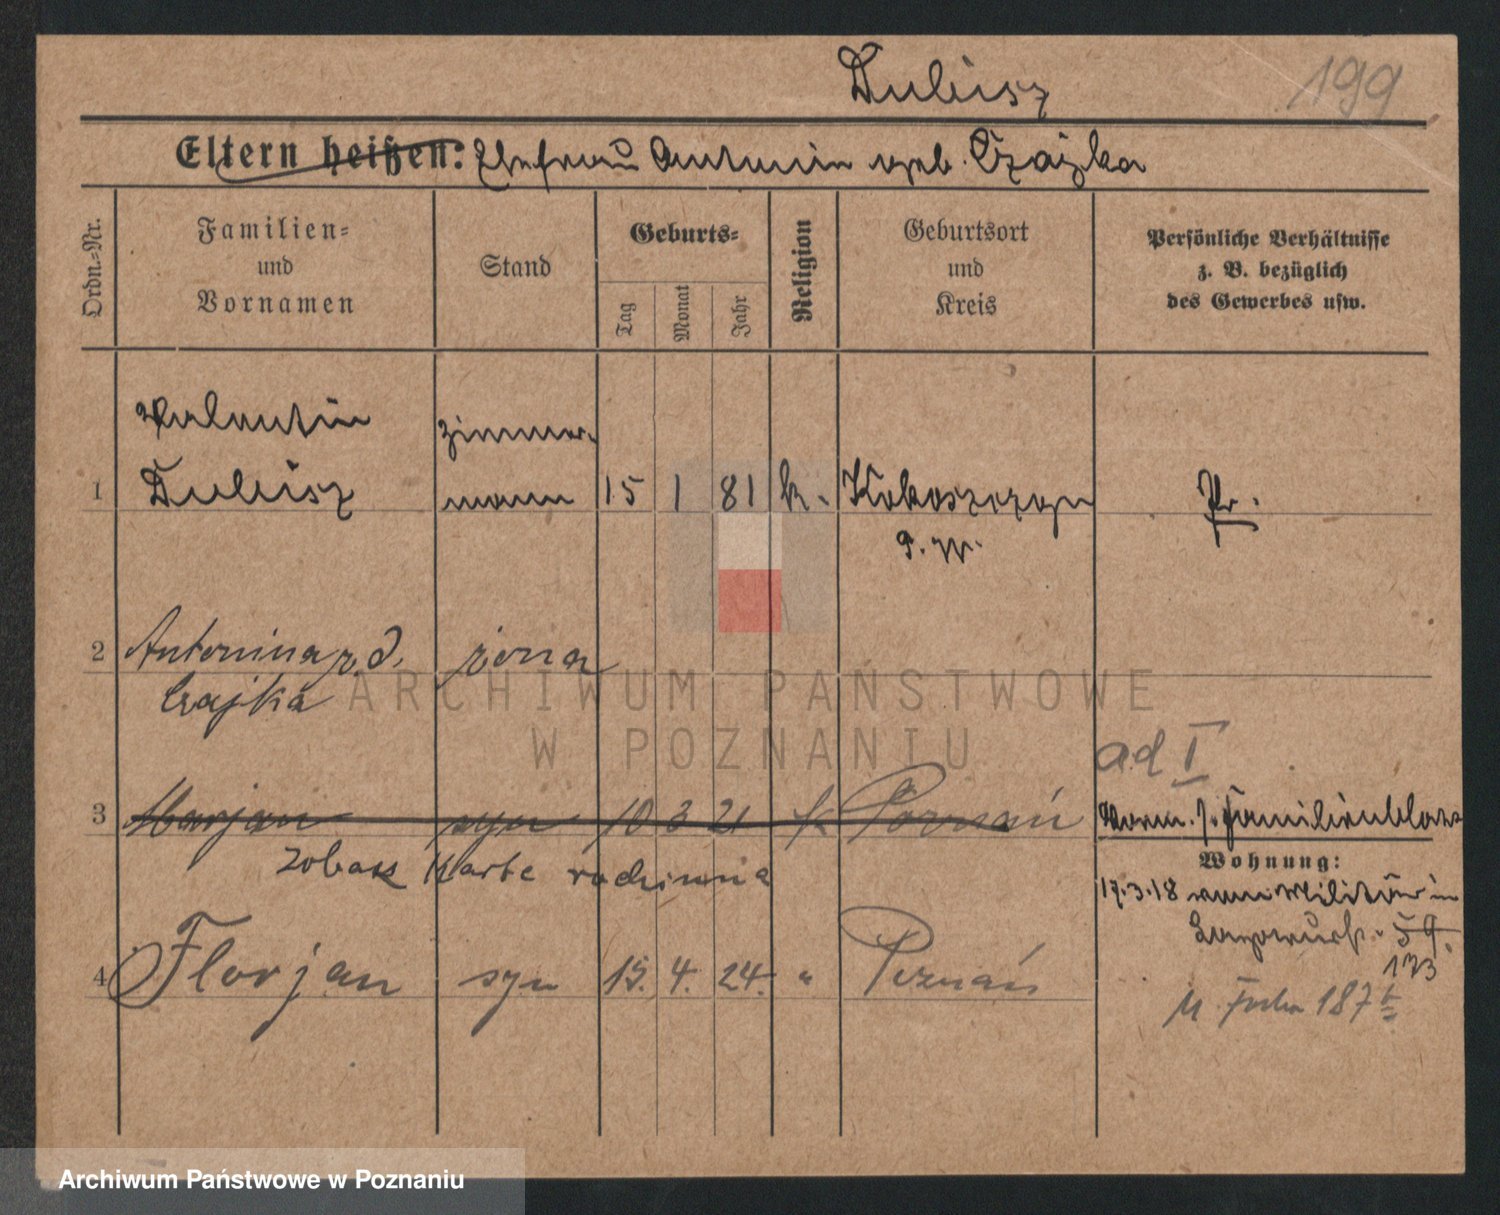 Dubisz
199
Eltern heißen: Ehefrau Antonin geb. Czajka
Ordn.-Nr.
Familien- und Vornamen
Stand
Geburts-
Tag
Monat
Jahr
Religion
Geburtsort und Kreis
Persönliche Verhältnisse z. B. bezüglich des Gewerbes usw.
Valentin Zimmer-
1 Dubisz mann 15 1 81 k. Pr.
2 Antonina z d. żona
Czajka
ad I
3 Marjan syn 10 3 21 k Poznań Vorm. s. Familienblatt
Zobacz Karte rodzinna
Wohnung:
17.3.18 vom Militär in
59.
4 Florjan syn 15. 4. 24. " Poznań
173
187
ARCHIWUM PAŃSTWOWE
W POZNANIU
Archiwum Państwowe w Poznaniu